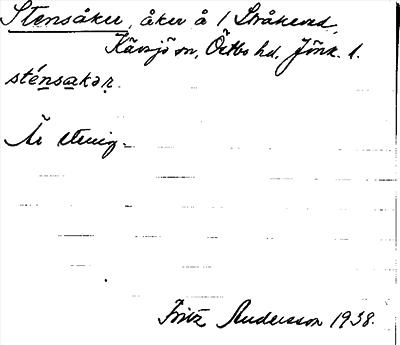 Stensåker, åker å 1 Stråkeved,
Kävsjö sn, Östbo hd, Jönk. l.
sténsakər.
Är stenig.
Fritz Andersson 1938.